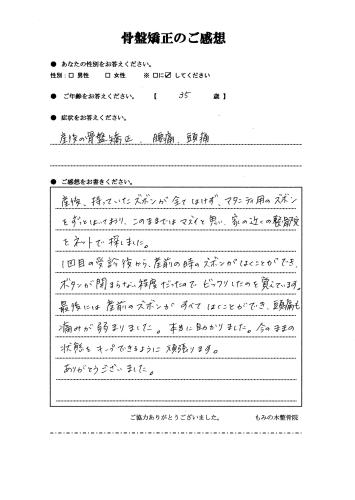 骨盤矯正のご感想
● あなたの性別をお答えください。
性別：□ 男性 □ 女性 ※ □に☑ してください
● ご年齢をお答えください。 【 35 歳 】
● 症状をお答えください。
産後の骨盤矯正、腰痛、頭痛
● ご感想をお書きください。
産後、持っていたズボンが全てはけず、マタニティ用のズボン
をずっとはいており、このままではマズイと思い、家の近くの整骨院
をネットで探しました。
1回目の受診後から、産前の時のズボンがはくことができ、
ボタンが閉まらない程度だったので ビックリしたのを覚えています。
最後には産前のズボンが すべてはくことができ、頭痛も
痛みが弱まりました。本当に助かりました。今のままの
状態をキープできるように頑張ります。
ありがとうございました。
ご協力ありがとうございました。 もみの木整骨院